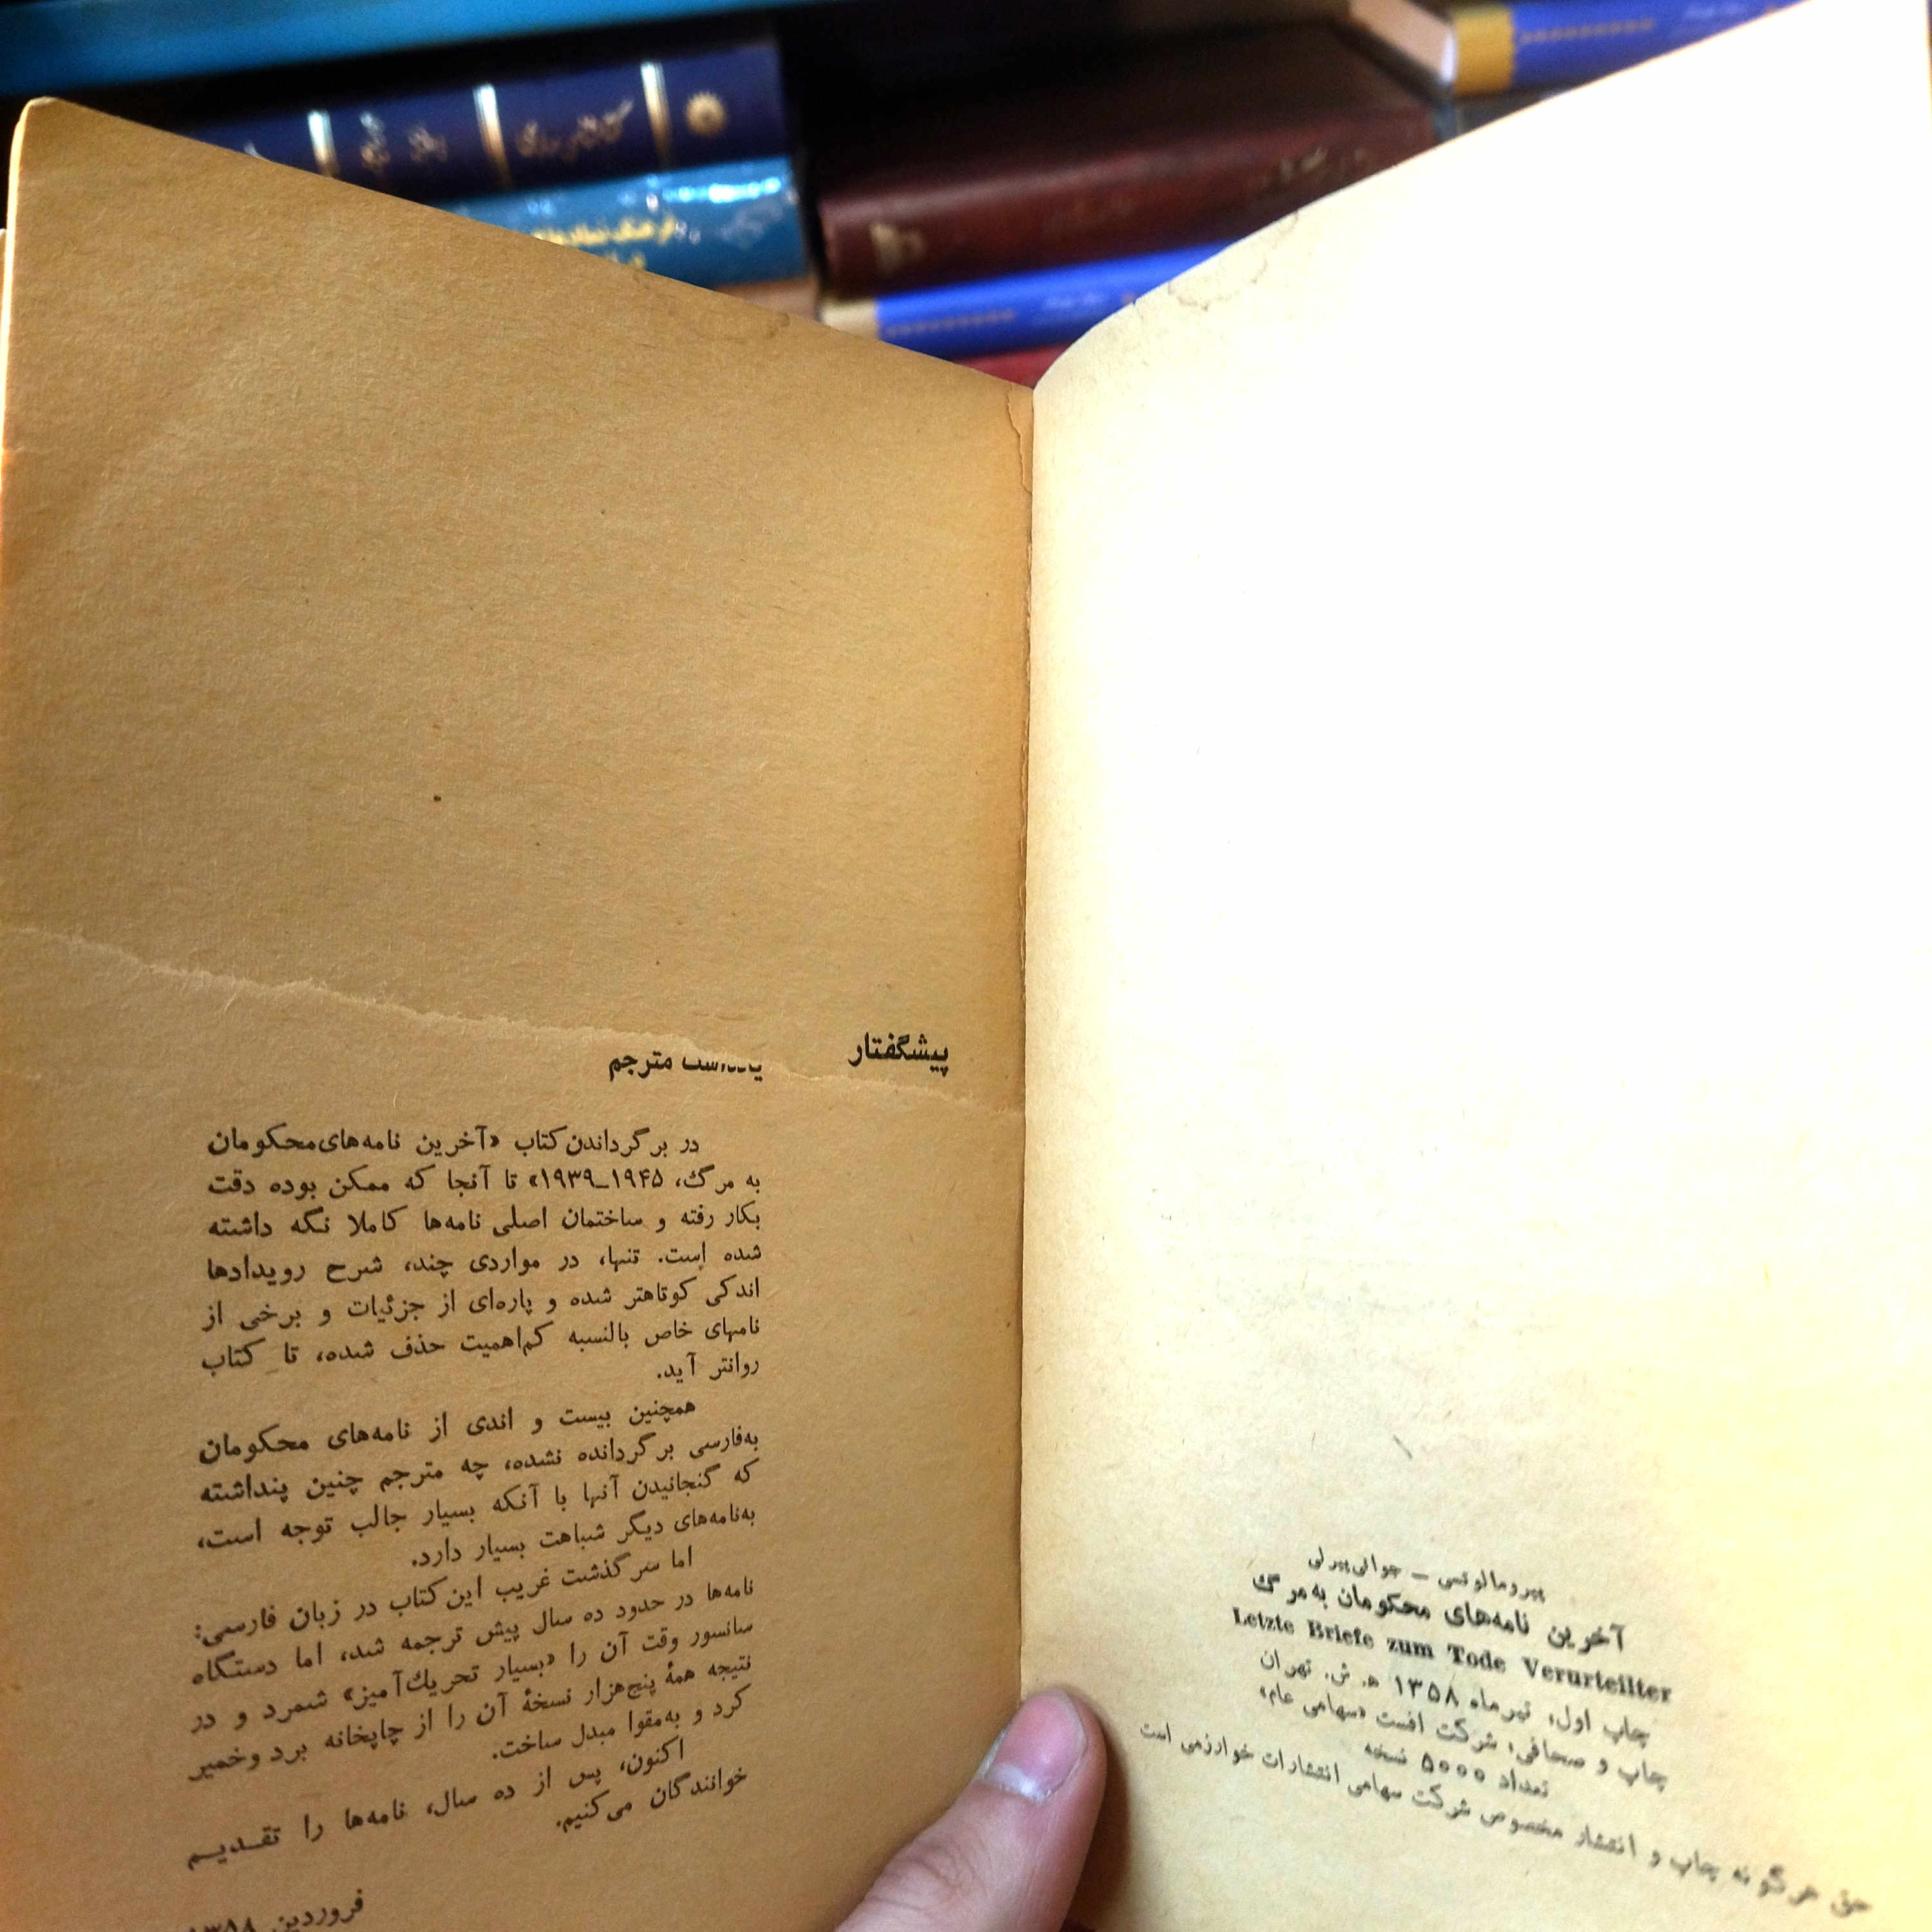 پیرو مالوتسی – جوانی پیرلی
آخرین نامه‌های محکومان به مرگ
Letzte Briefe zum Tode Verurteilter
چاپ اول، تیرماه ۱۳۵۸ ه. ش. تهران
چاپ و صحافی: شرکت افست «سهامی عام»
تعداد ۵۰۰۰ نسخه
حق هرگونه چاپ و انتشار مخصوص شرکت سهامی انتشارات خوارزمی است
پیشگفتار
مترجم
در برگرداندن کتاب «آخرین نامه‌های محکومان
به مرگ، ۱۹۴۵–۱۹۳۹» تا آنجا که ممکن بوده دقت
بکار رفته و ساختمان اصلی نامه‌ها کاملا نگه داشته
شده است. تنها، در مواردی چند، شرح رویدادها
اندکی کوتاهتر شده و پاره‌ای از جزئیات و برخی از
نامهای خاص بالنسبه کم‌اهمیت حذف شده، تا کتاب
روانتر آید.
همچنین بیست و اندی از نامه‌های محکومان
به‌فارسی برگردانده نشده، چه مترجم چنین پنداشته
که گنجانیدن آنها با آنکه بسیار جالب توجه است،
به‌نامه‌های دیگر شباهت بسیار دارد.
اما سرگذشت غریب این کتاب در زبان فارسی:
نامه‌ها در حدود ده سال پیش ترجمه شد، اما دستگاه
سانسور وقت آن را «بسیار تحریک‌آمیز» شمرد و در
نتیجه همهٔ پنج‌هزار نسخهٔ آن را از چاپخانه برد و خمیر
کرد و به‌مقوا مبدل ساخت.
اکنون، پس از ده سال، نامه‌ها را تقدیم
خوانندگان می‌کنیم.
فروردین ۱۳۵۸